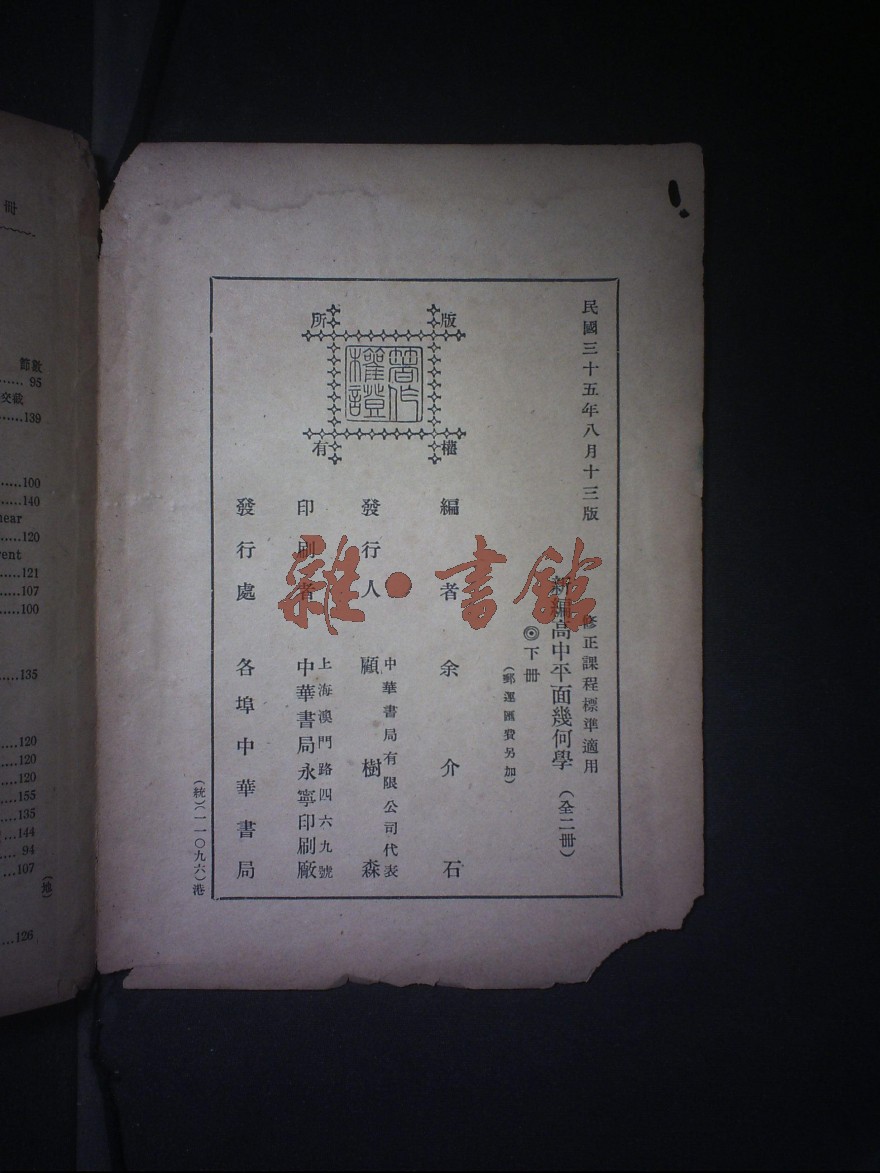 民國三十五年八月十三版
修正課程標準適用
新編高中平面幾何學（全二冊）
◎下冊
（郵運匯費另加）
版權
所有
著作
權證
編者 余介石
發行人 中華書局有限公司代表
顧樹森
印刷者 上海澳門路四六九號
中華書局永寧印刷廠
發行處 各埠中華書局
（統）（一一〇九六）港
雜·書館
冊
節數
95
交截
139
100
140
near
120
ent
121
107
100
135
120
120
120
155
135
144
94
107
126
（地）